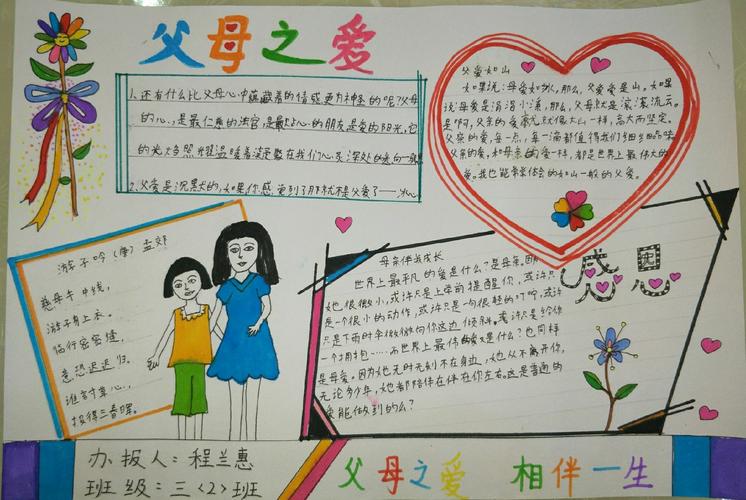 父母之爱
1、还有什么比父母心中蕴藏着的情感更为神圣的呢？父母
的心,是最仁慈的法官,是最贴心的朋友,是爱的阳光,它
的光焰照耀温暖着凝聚在我们心灵深处的意向一般
2、父爱是沉默的,如果你感觉到了那就不是父爱了——冰心
父爱如山
如果说:母爱如水,那么,父爱是山。如果
说母爱是涓涓小溪,那么,父母就是滚滚流云。
是啊,父亲的爱就像大山一样,高大而坚定。
父亲的爱,每一点,每一滴都值得我们细细品味
父亲的爱,和母亲的爱一样,都是世界上最伟大的
爱。我也能常常体会的如山一般的父爱。
游子吟(唐)孟郊
慈母手中线,
游子身上衣。
临行密密缝,
意恐迟迟归。
谁言寸草心,
报得三春晖。
母亲伴我成长
世界上最平凡的爱是什么?是母爱。因为
她很微小,或许只是上学前提醒你,或许只
是一个很小的动作,或许只是一句很轻的叮咛,或许
只是下雨时伞微微向你这边倾斜。或许只是给你
一个拥抱……世界上最伟的爱是什么?也同样
是母爱。因为她无时无刻不在身边,她也从不离开你,
无论多少年,她都陪伴在你左右。这是普通的
爱能做到的么?
感恩
办报人:程兰惠
班级:三〈2〉班
父母之爱 相伴一生